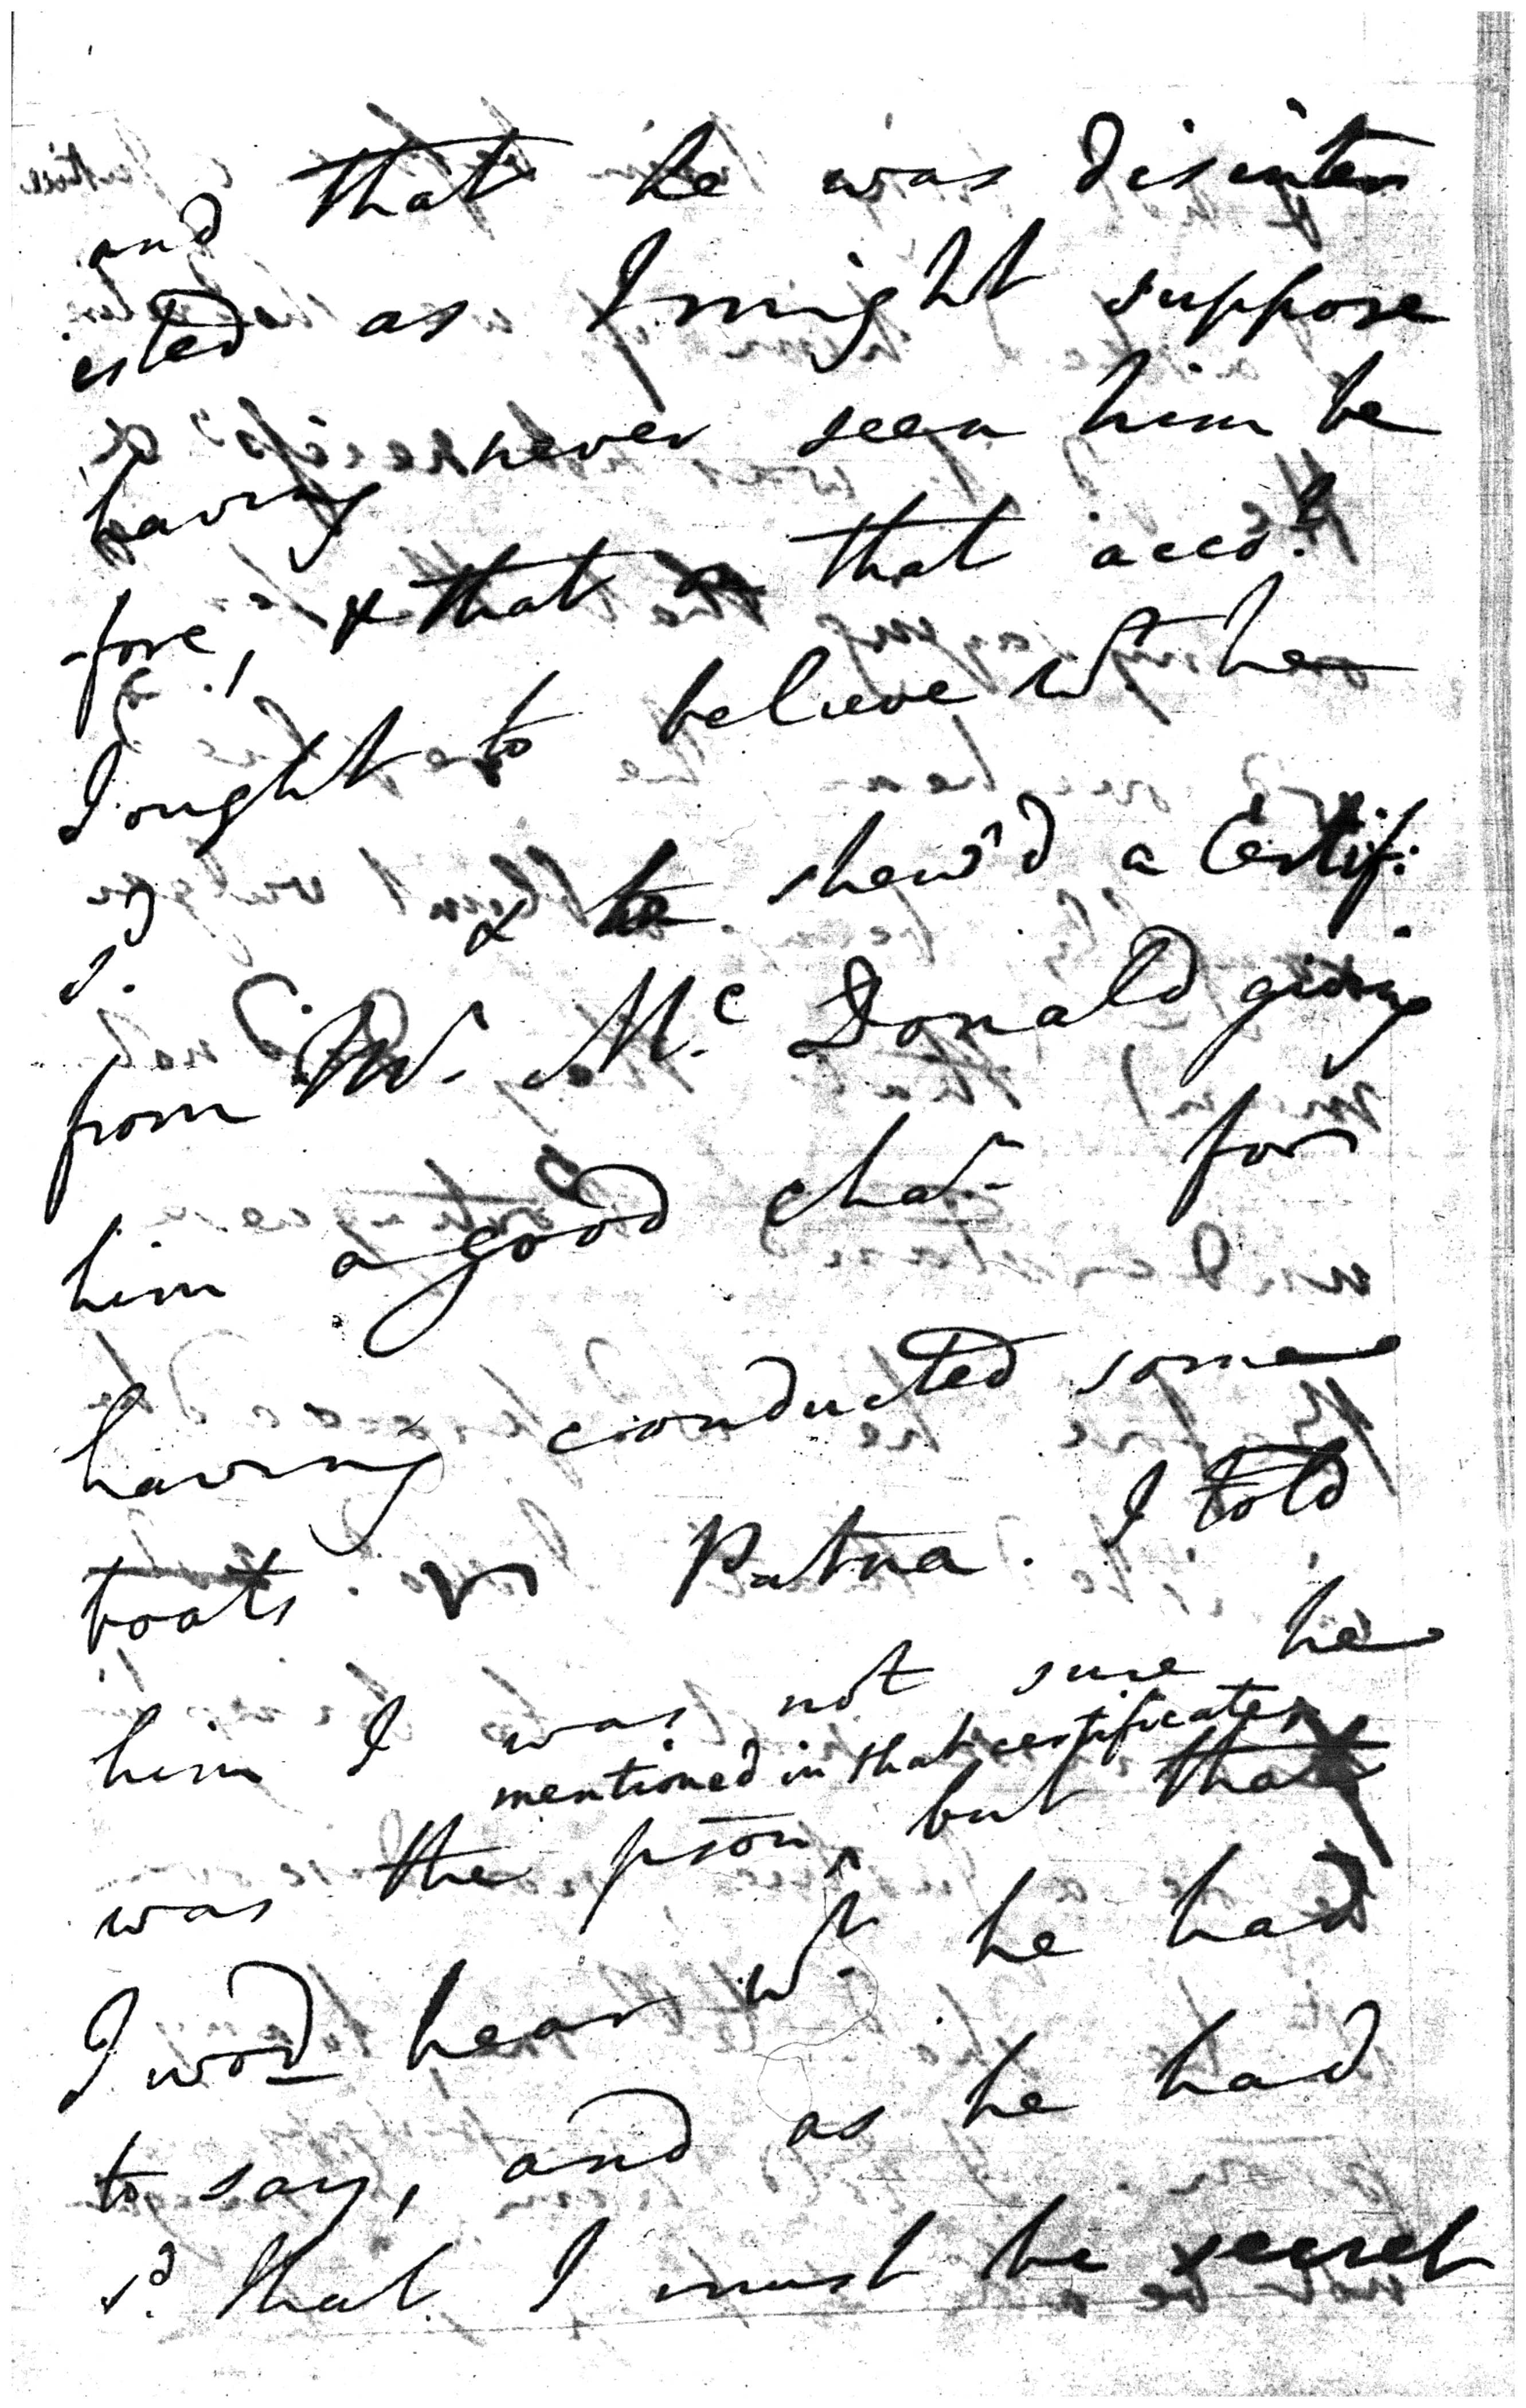 and that he was disinter
ested as I might suppose
having never seen him be
fore, & that on that acco.t
I ought to believe w.t he
s.d & he shew'd a Certif:
from Mr. Mc Donald giving
him a good char for
having conducted some
boats Patna. I told
him I was not sure he
mentioned in that certificate
was the pson ^ but that
I wod hear w.t he had
to say, and as he had
s.d that I must be secret